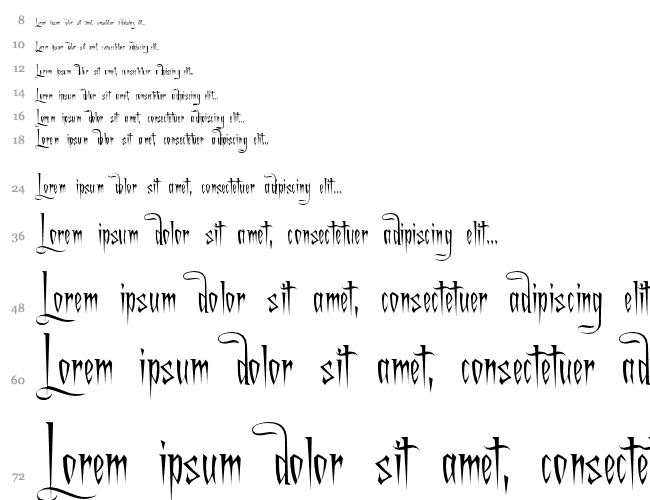 8 Lorem ipsum dolor sit amet, consectetuer adipiscing elit...
10 Lorem ipsum dolor sit amet, consectetuer adipiscing elit...
12 Lorem ipsum dolor sit amet, consectetuer adipiscing elit...
14 Lorem ipsum dolor sit amet, consectetuer adipiscing elit...
16 Lorem ipsum dolor sit amet, consectetuer adipiscing elit...
18 Lorem ipsum dolor sit amet, consectetuer adipiscing elit...
24 Lorem ipsum dolor sit amet, consectetuer adipiscing elit...
36 Lorem ipsum dolor sit amet, consectetuer adipiscing elit...
48 Lorem ipsum dolor sit amet, consectetuer adipiscing elit
60 Lorem ipsum dolor sit amet, consectetuer ad
72 Lorem ipsum dolor sit amet, consecte